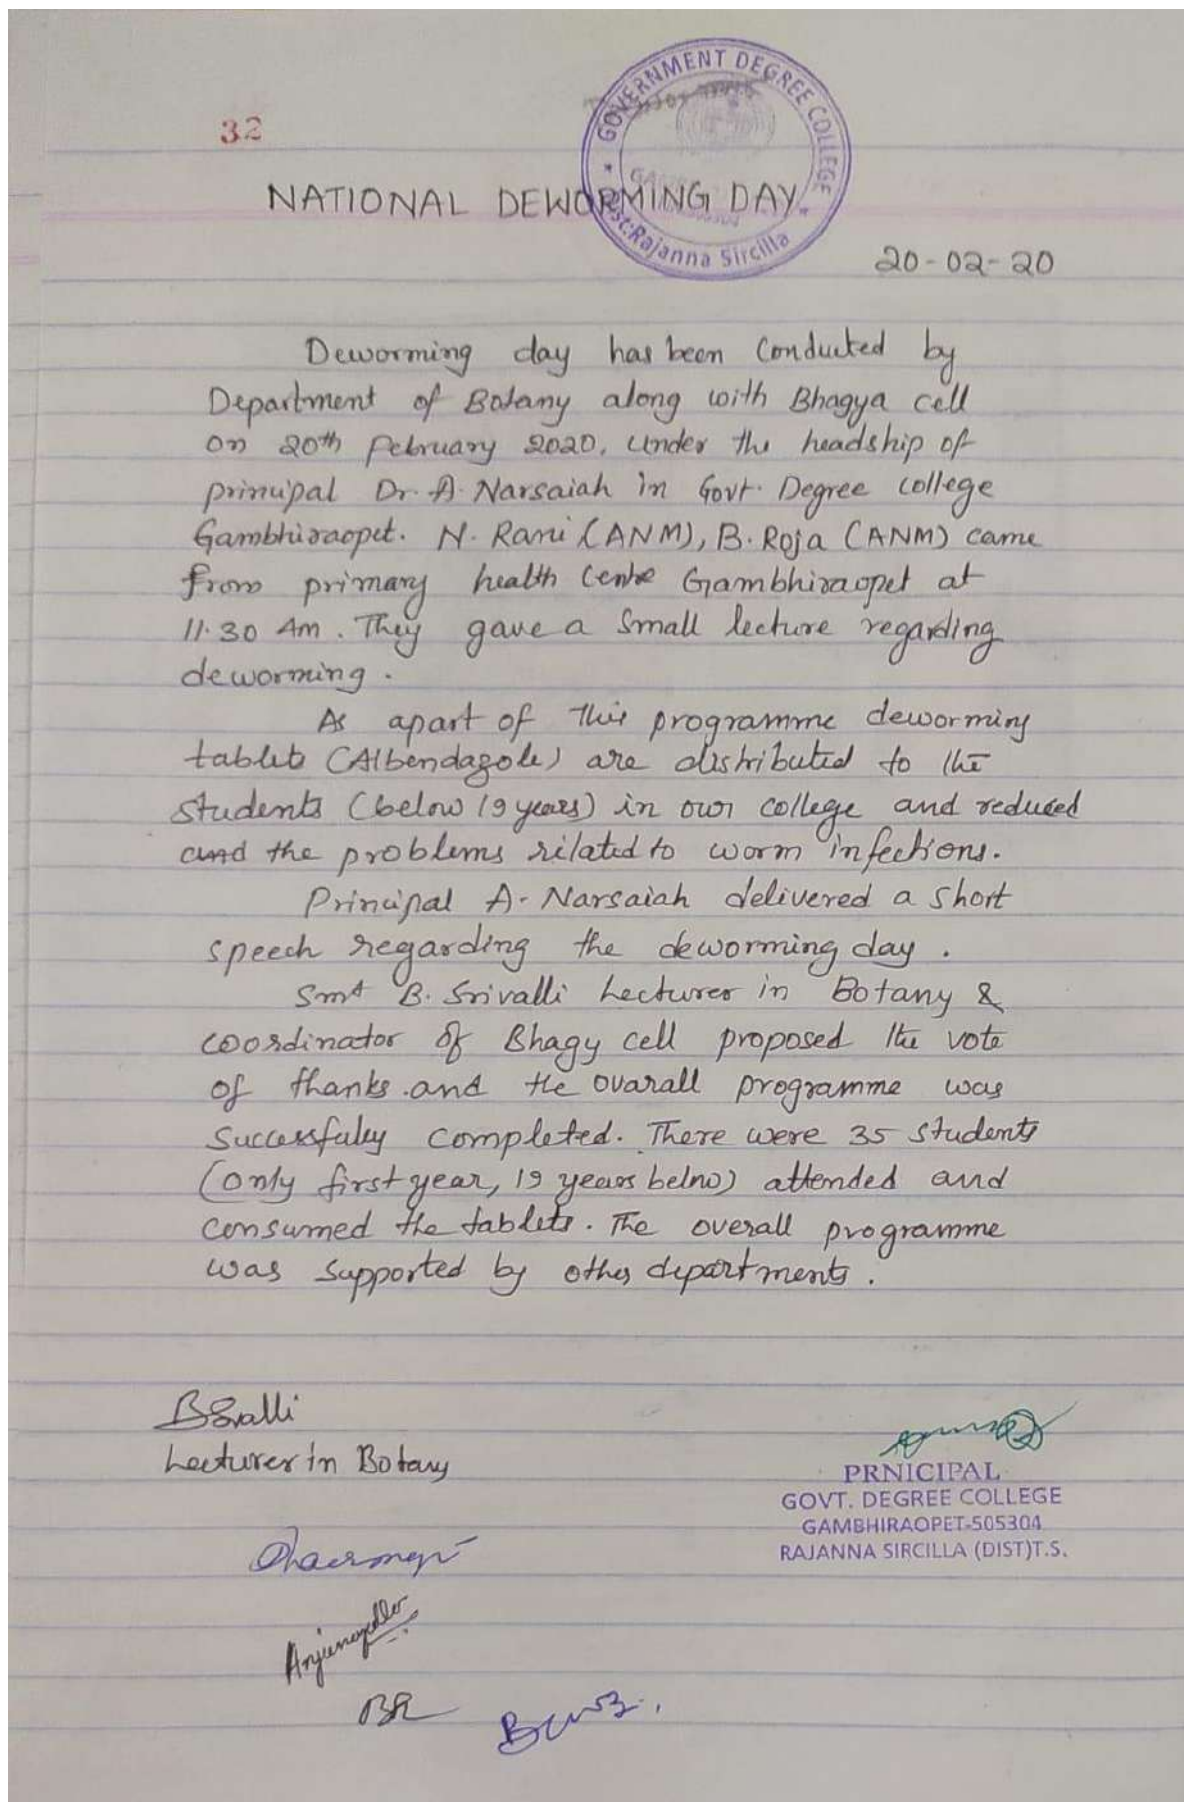 32
GOVERNMENT DEGREE COLLEGE
Dist:Rajanna Sircilla
NATIONAL DEWORMING DAY
20-02-20
Deworming day has been Conducted by
Department of Botany along with Bhagya cell
on 20th February 2020, under the headship of
principal Dr. A. Narsaiah in Govt. Degree college
Gambhiraopet. N. Rani (ANM), B. Roja (ANM) came
from primary health Centre Gambhiraopet at
11.30 Am. They gave a Small lecture regarding
deworming.
As apart of this programme deworming
tablets (Albendazole) are distributed to the
students (below 19 years) in our college and reduced
and the problems rilated to worm infections.
Principal A. Narsaiah delivered a short
speech regarding the deworming day.
Smt B. Srivalli Lecturer in Botany &
coordinator of Bhagy cell proposed the vote
of thanks.and the ovarall programme was
Successfuly completed. There were 35 students
(only first year, 19 years belno) attended and
consumed the tablets. The overall programme
was supported by other departments.
Lecturer in Botany
PRNICIPAL
GOVT. DEGREE COLLEGE
GAMBHIRAOPET-505304
RAJANNA SIRCILLA (DIST)T.S.